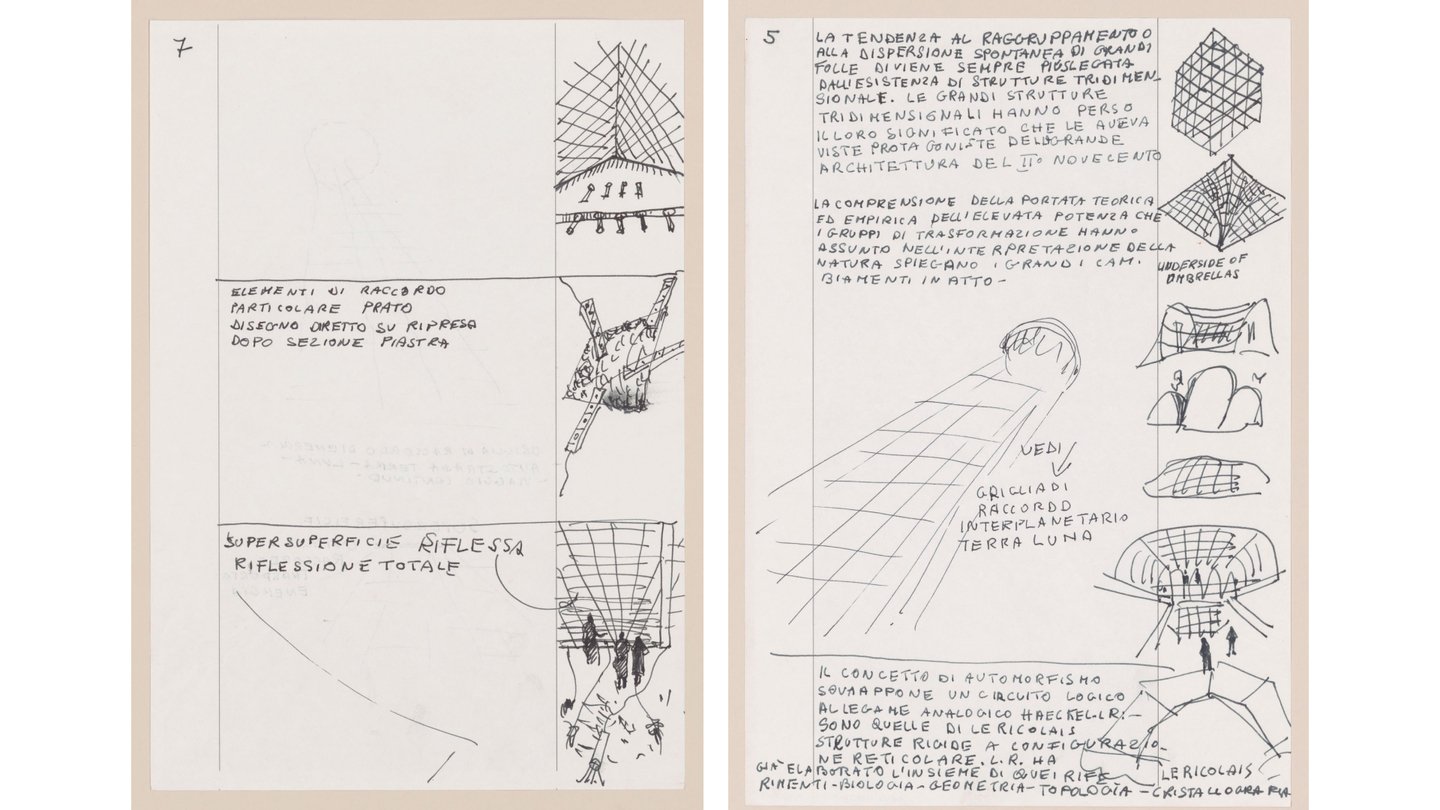 7
ELEMENTI DI RACCORDO
PARTICOLARE PRATO
DISEGNO DIRETTO SU RIPRESA
DOPO SEZIONE PIASTRA
SUPERSUPERFICIE RIFLESSA
RIFLESSIONE TOTALE
5
LA TENDENZA AL RAGGRUPPAMENTO O
ALLA DISPERSIONE SPONTANEA DI GRANDI
FOLLE DIVIENE SEMPRE PIÙ SLEGATA
DALL'ESISTENZA DI STRUTTURE TRIDIMEN-
SIONALE. LE GRANDI STRUTTURE
TRIDIMENSIONALI HANNO PERSO
IL LORO SIGNIFICATO CHE LE AVEVA
VISTE PROTAGONISTE DELLA GRANDE
ARCHITETTURA DEL II° NOVECENTO
LA COMPRENSIONE DELLA PORTATA TEORICA
ED EMPIRICA DELL'ELEVATA POTENZA CHE
I GRUPPI DI TRASFORMAZIONE HANNO
ASSUNTO NELL'INTERPRETAZIONE DELLA
NATURA SPIEGANO I GRANDI CAM-
BIAMENTI IN ATTO -
UNDERSIDE OF
UMBRELLAS
VEDI
GRIGLIA DI
RACCORDO
INTERPLANETARIO
TERRA LUNA
IL CONCETTO DI AUTOMORFISMO
SOVRAPPONE UN CIRCUITO LOGICO
AL LEGAME ANALOGICO HAECKEL-L.R. -
SONO QUELLE DI LE RICOLAIS
STRUTTURE RIGIDE A CONFIGURAZIO-
NE RETICOLARE. L.R. HA
GIÀ ELABORATO L'INSIEME DI QUEI RIFE
RIMENTI - BIOLOGIA - GEOMETRIA - TOPOLOGIA - CRISTALLOGRAFIA
LE RICOLAIS -